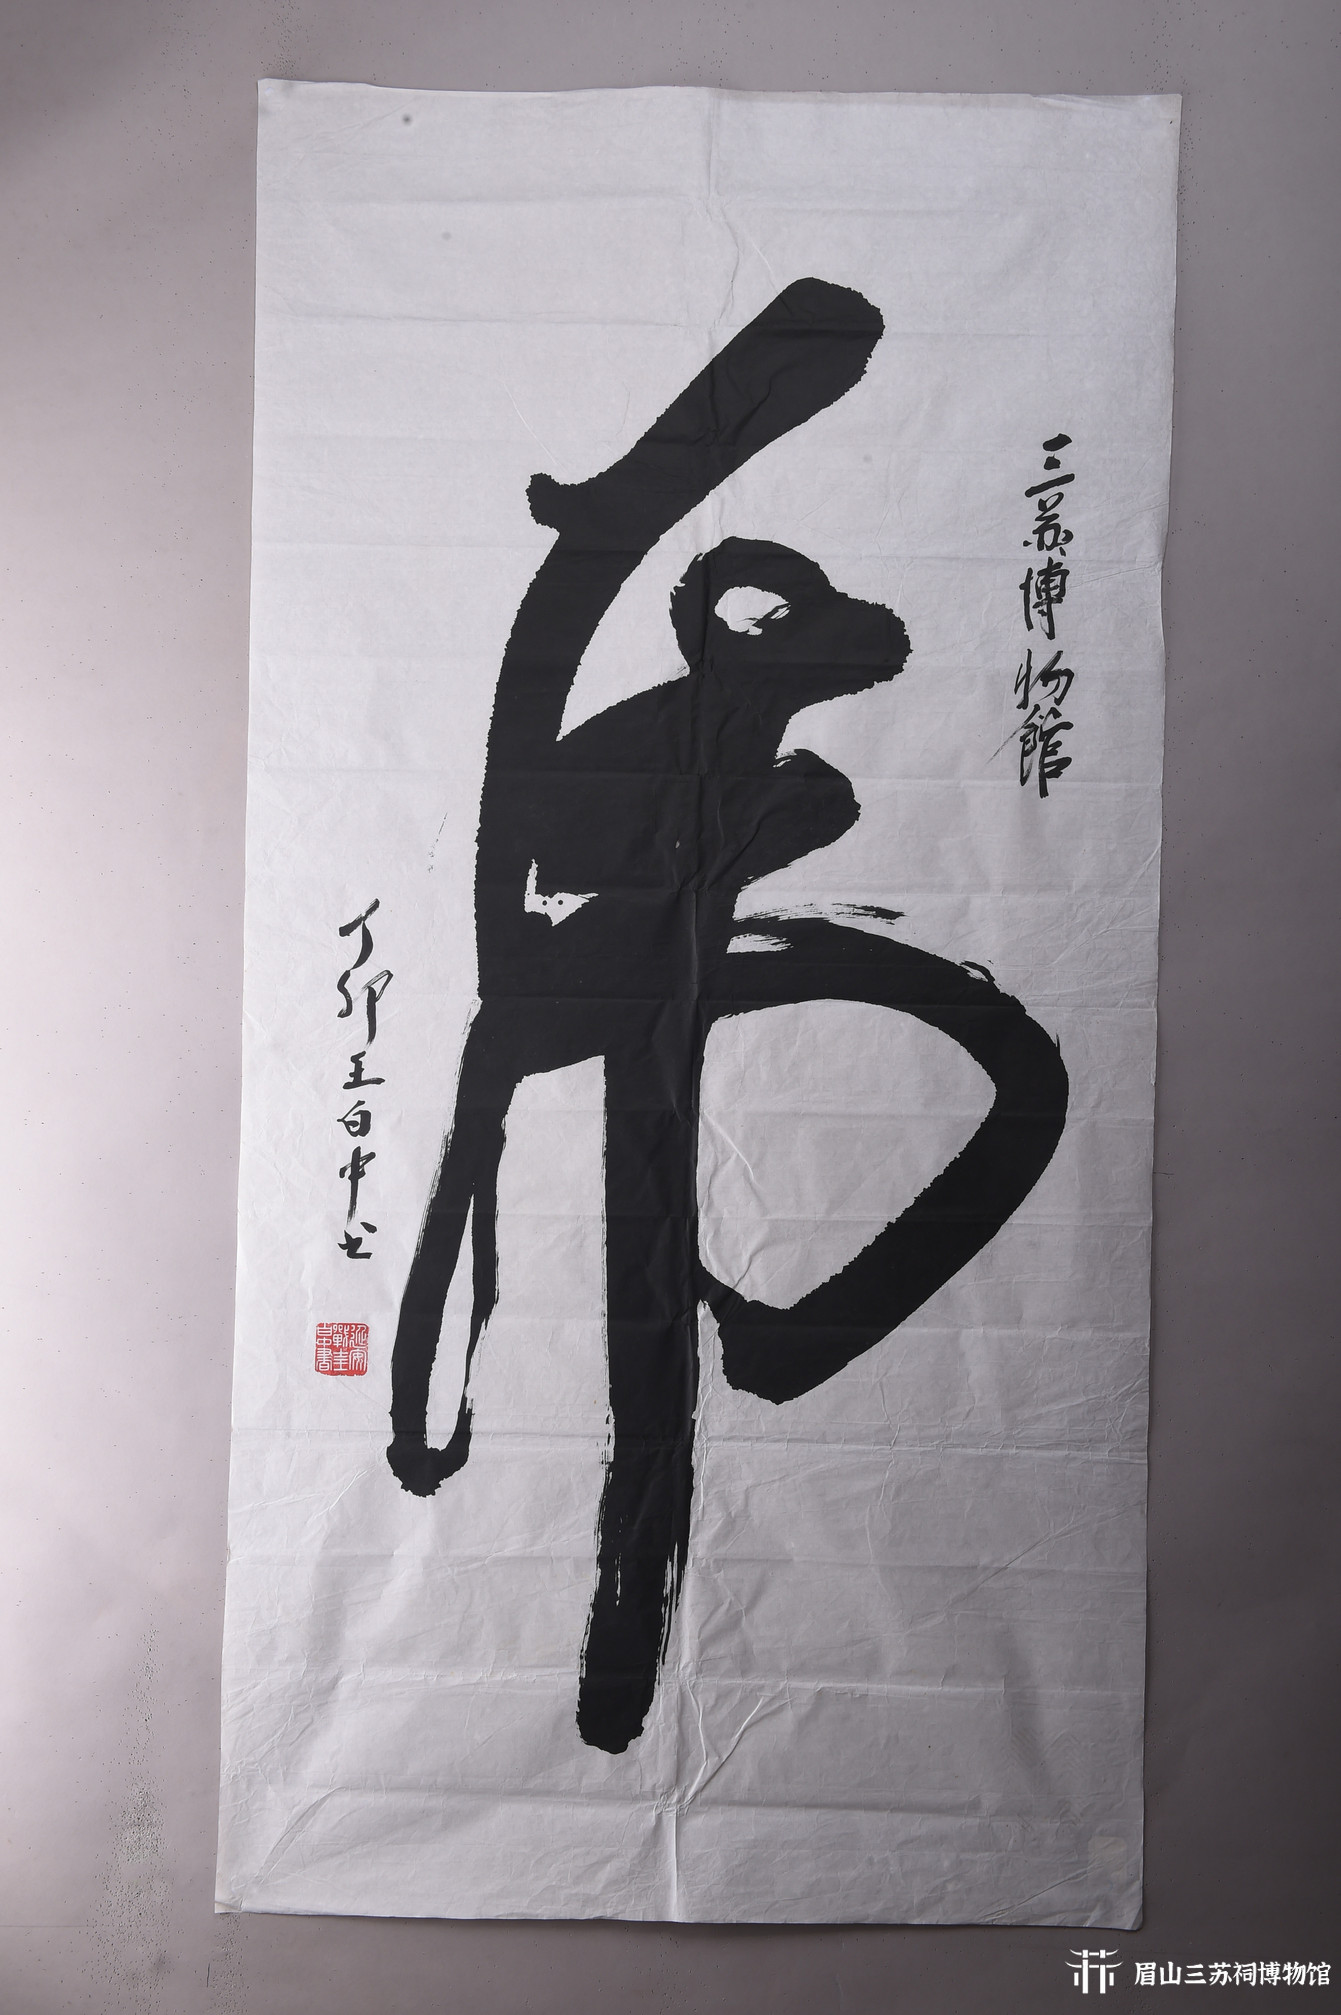 三苏博物館
虎
丁卯王白中书
眉山三苏祠博物馆